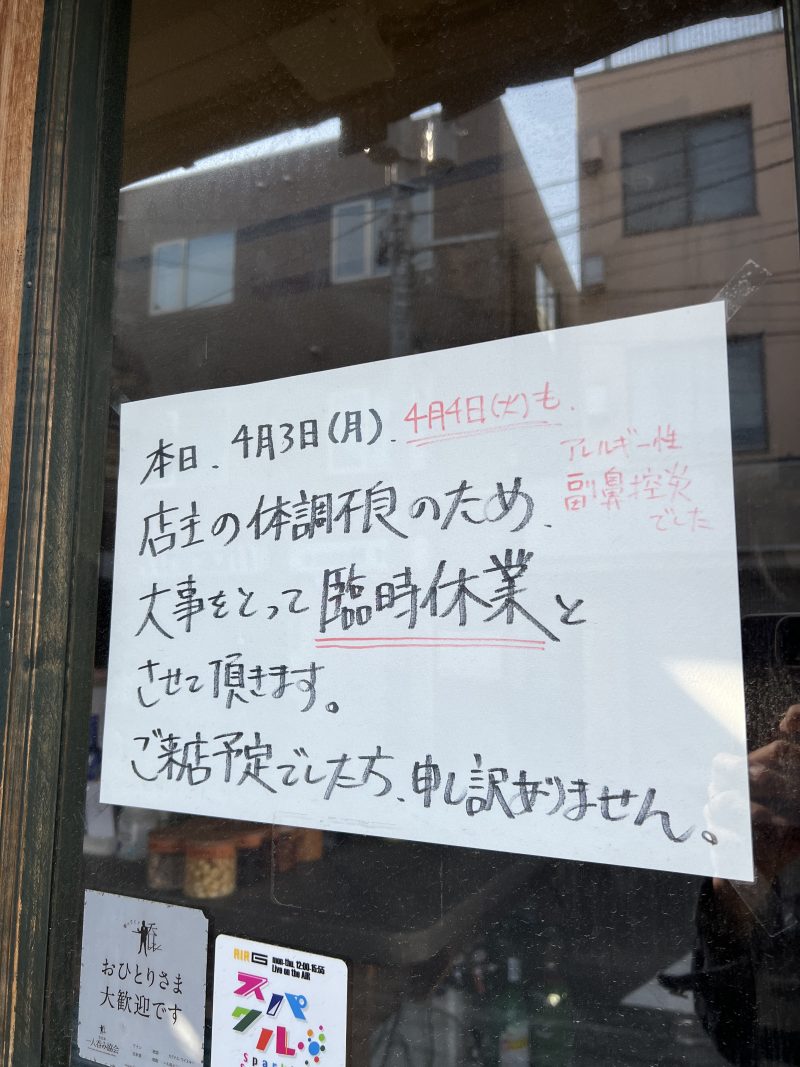 本日、4月3日(月)、4月4日(火)も、
アレルギー性
副鼻控炎
でした
店主の体調不良のため、
大事をとって臨時休業と
させて頂きます。
ご来店予定でしたら、申し訳ありません。
おひとりさま
大歓迎です
一人呑み協会
AIR G
mon-thu. 12:00-15:55
Live on the AIR
スパ
クル